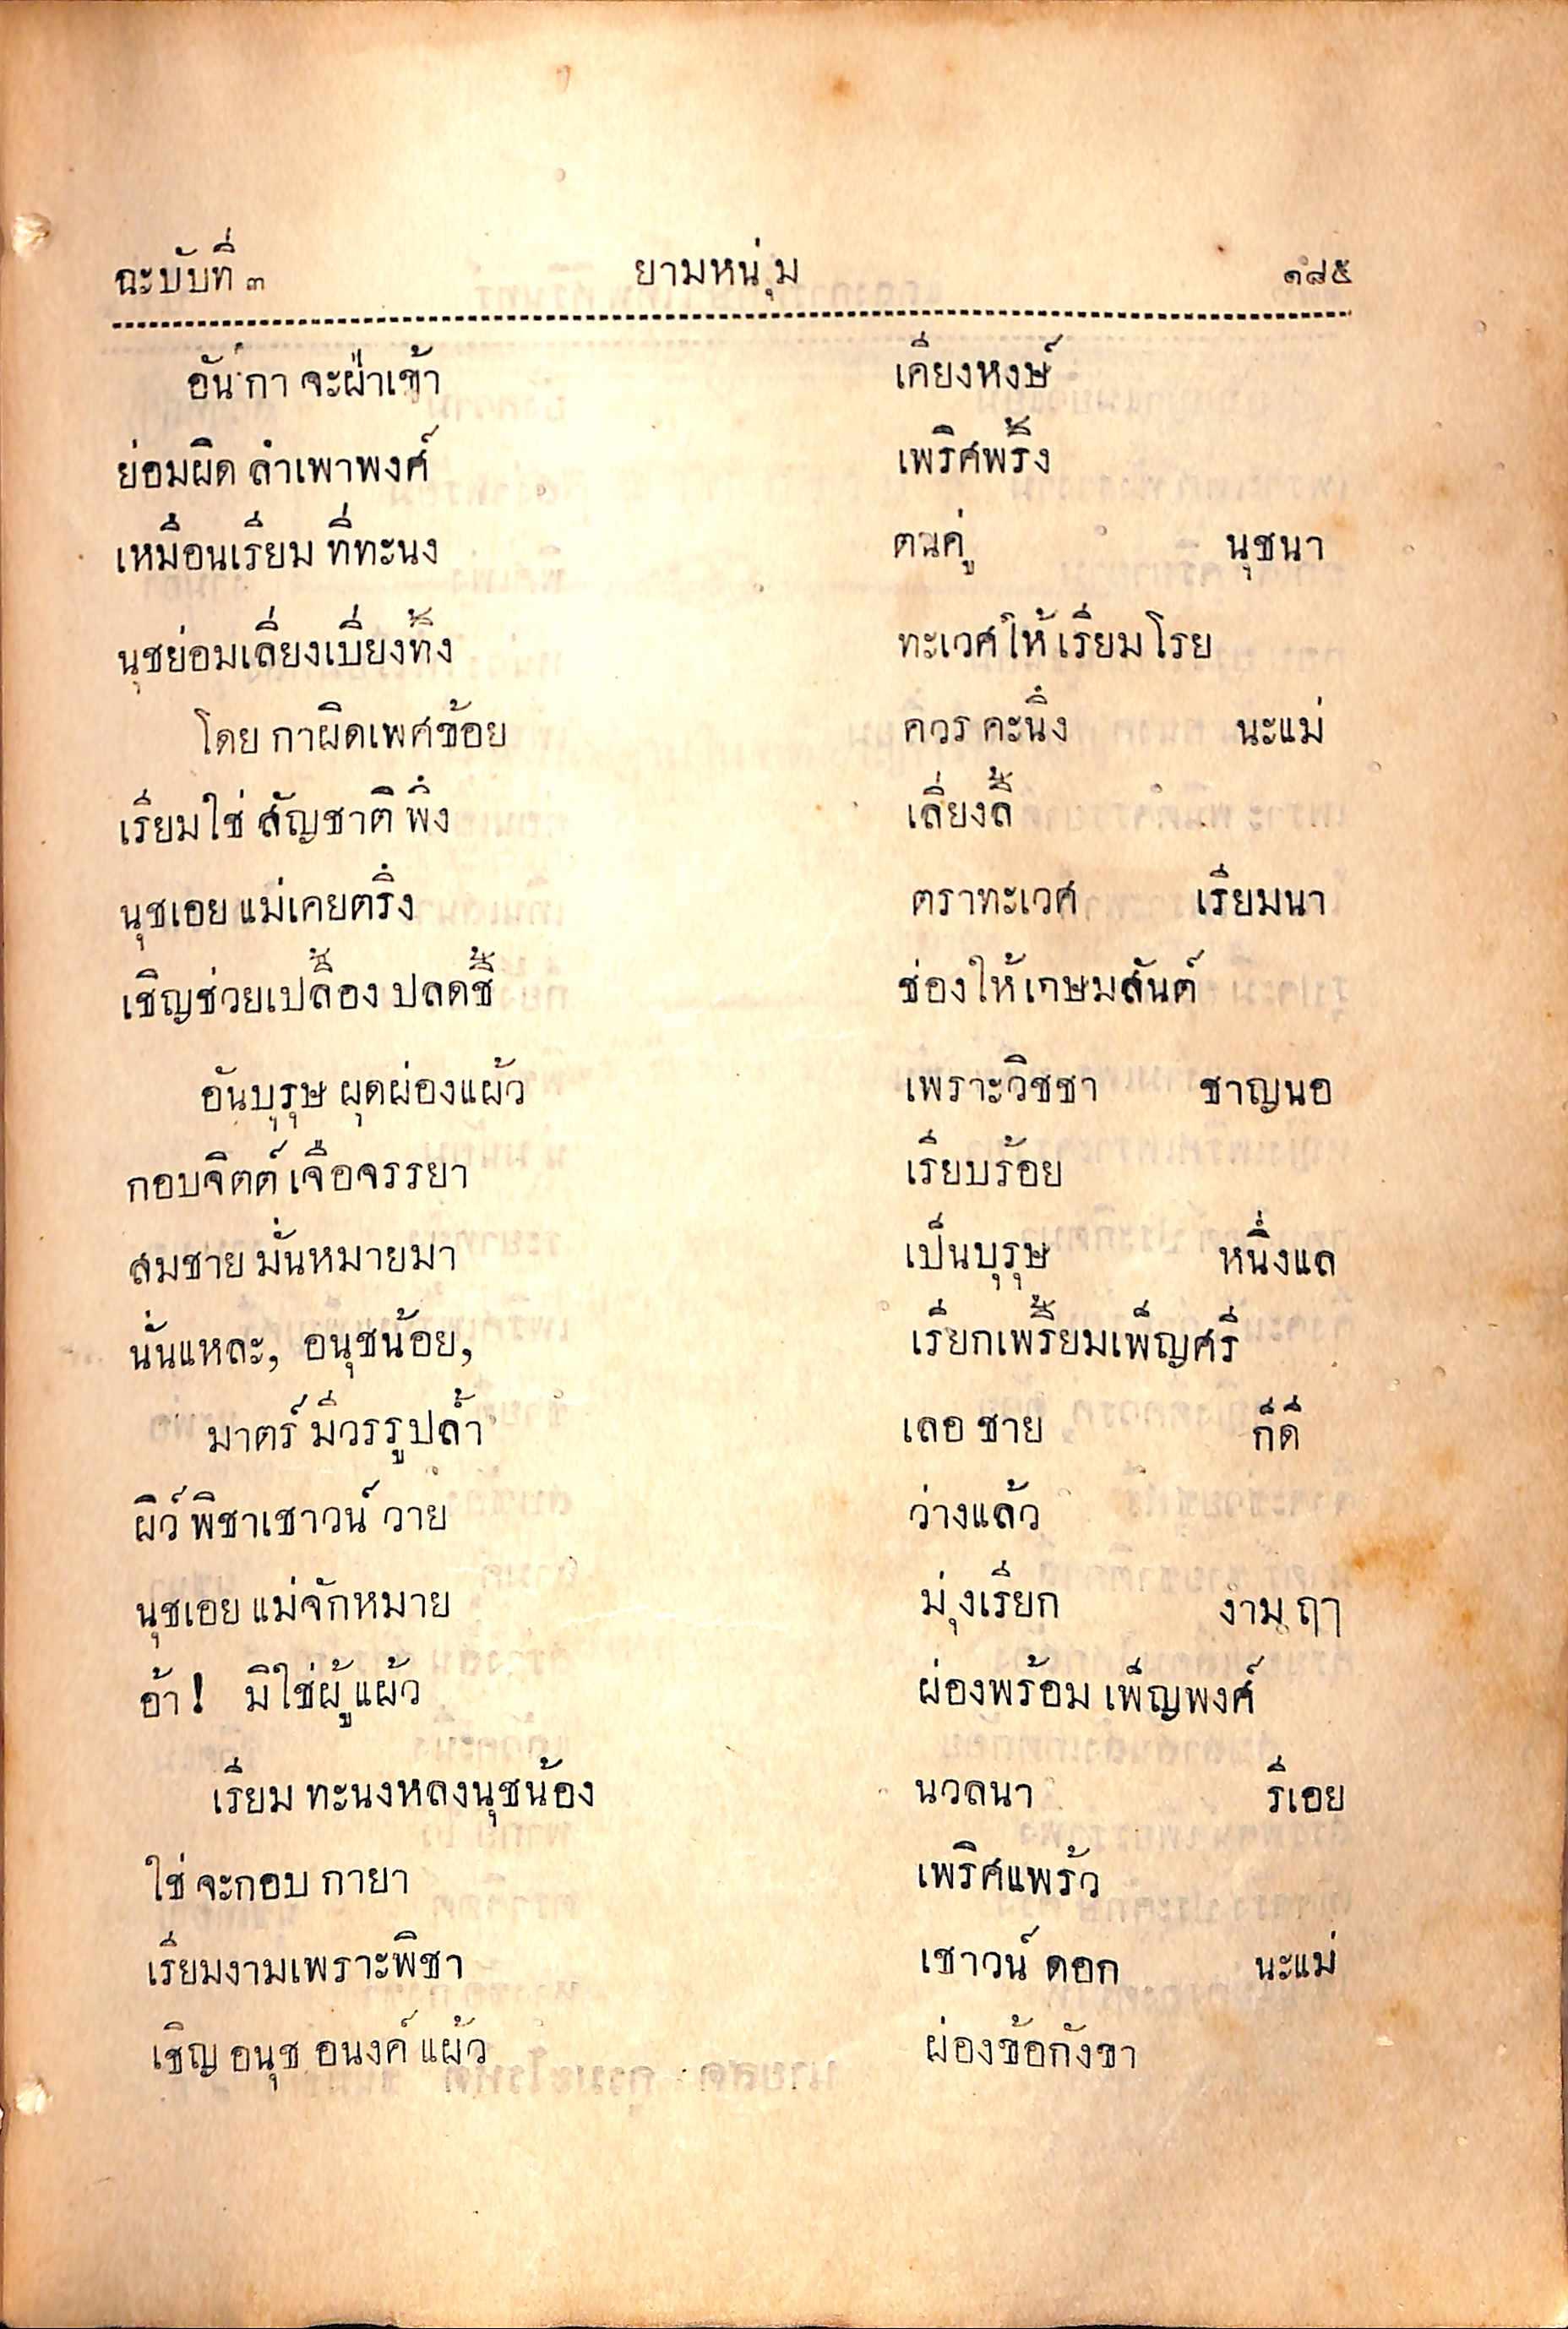 ฉะบับที่ ๓ ยามหนุ่ม ๑๘๕
อันกา จะฝ่าเข้า เคียงหงษ์
ย่อมผิด ลำเพาพงศ์ เพริศพริ้ง
เหมือนเรียม ที่ทะนง ตนคู่ นุชนา
นุชย่อมเลี่ยงเบี่ยงทิ้ง ทะเวศให้ เรียมโรย
โดย กาผิดเพศข้อย ควร คะนึง นะแม่
เรียมใช่ สัญชาติ พึง เลี่ยงลี้
นุชเอย แม่เคยตรึง ตราทะเวศ เรียมนา
เชิญช่วยเปลื้อง ปลดชี้ ช่องให้เกษมสันต์
อันบุรุษ ผุดผ่องแผ้ว เพราะวิชชา ชาญนอ
กอบจิตต์ เจือจรรยา เรียบร้อย
สมชาย มั่นหมายมา เป็นบุรุษ หนึ่งแล
นั่นแหละ, อนุชน้อย, เรียกเพรี้ยมเพ็ญศรี
มาตร์ มีวรรูปล้ำ เลอ ชาย ก็ดี
ผิว์ พิชาเชาวน์ วาย ว่างแล้ว
นุชเอย แม่จักหมาย มุ่งเรียก งาม ฤๅ
อ้า! มิใช่ผู้ แผ้ว ผ่องพร้อม เพ็ญพงศ์
เรียม ทะนงหลงนุชน้อง นวลนา รีเอย
ใช่ จะกอบ กายา เพริศแพร้ว
เรียมงามเพราะพิชา เชาวน์ ดอก นะแม่
เชิญ อนุช อนงค์ แผ้ว ผ่องข้อกังขา